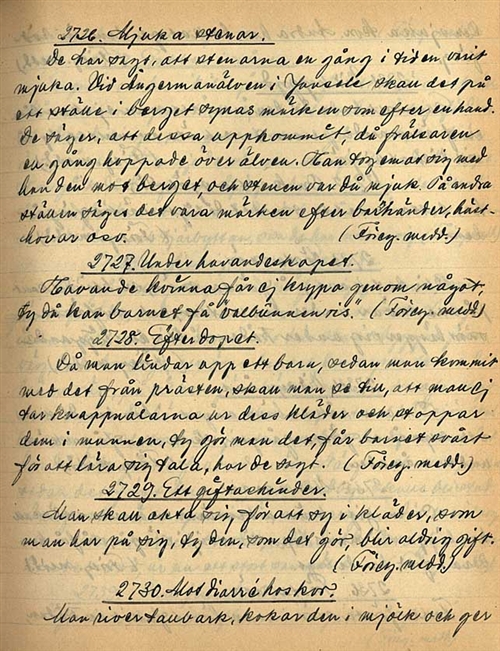 2726. Mjuka stenar.
De har sagt, att stenarna en gång i tiden varit
mjuka. Vid Ångermanälven i Junsele skall det på
ett ställe i berget synas märken som efter en hand.
De säger, att dessa uppkommit, då frälsaren
en gång hoppade över älven. Han tog emot sig med
handen mot berget och stenen var då mjuk. På andra
ställen säges det vara märken efter barhänder, häst-
hovar osv. (Föreg. medd.)
2727. Under havandeskapet.
Havande kvinna får ej krypa genom något.
ty då kan barnet få "valbünnenris" (Föreg. medd.)
2728. Efter dopet.
Då man lindar upp ett barn, sedan man kommit
med det från prästen, skall man se till, att man ej
tar knappnålarna ur dess kläder och stoppar
dem i munnen, ty gör man det, får barnet svårt
för att lära sig tala, har de sagt. (Föreg. medd.)
2729. Ett giftashinder.
Man skall akta sig för att sy i kläder, som
man har på sig, ty den, som det gör, blir aldrig gift.
(Föreg. medd.)
2730. Mot diarré hos kor.
Man river taubark, kokar den i mjölk och ger